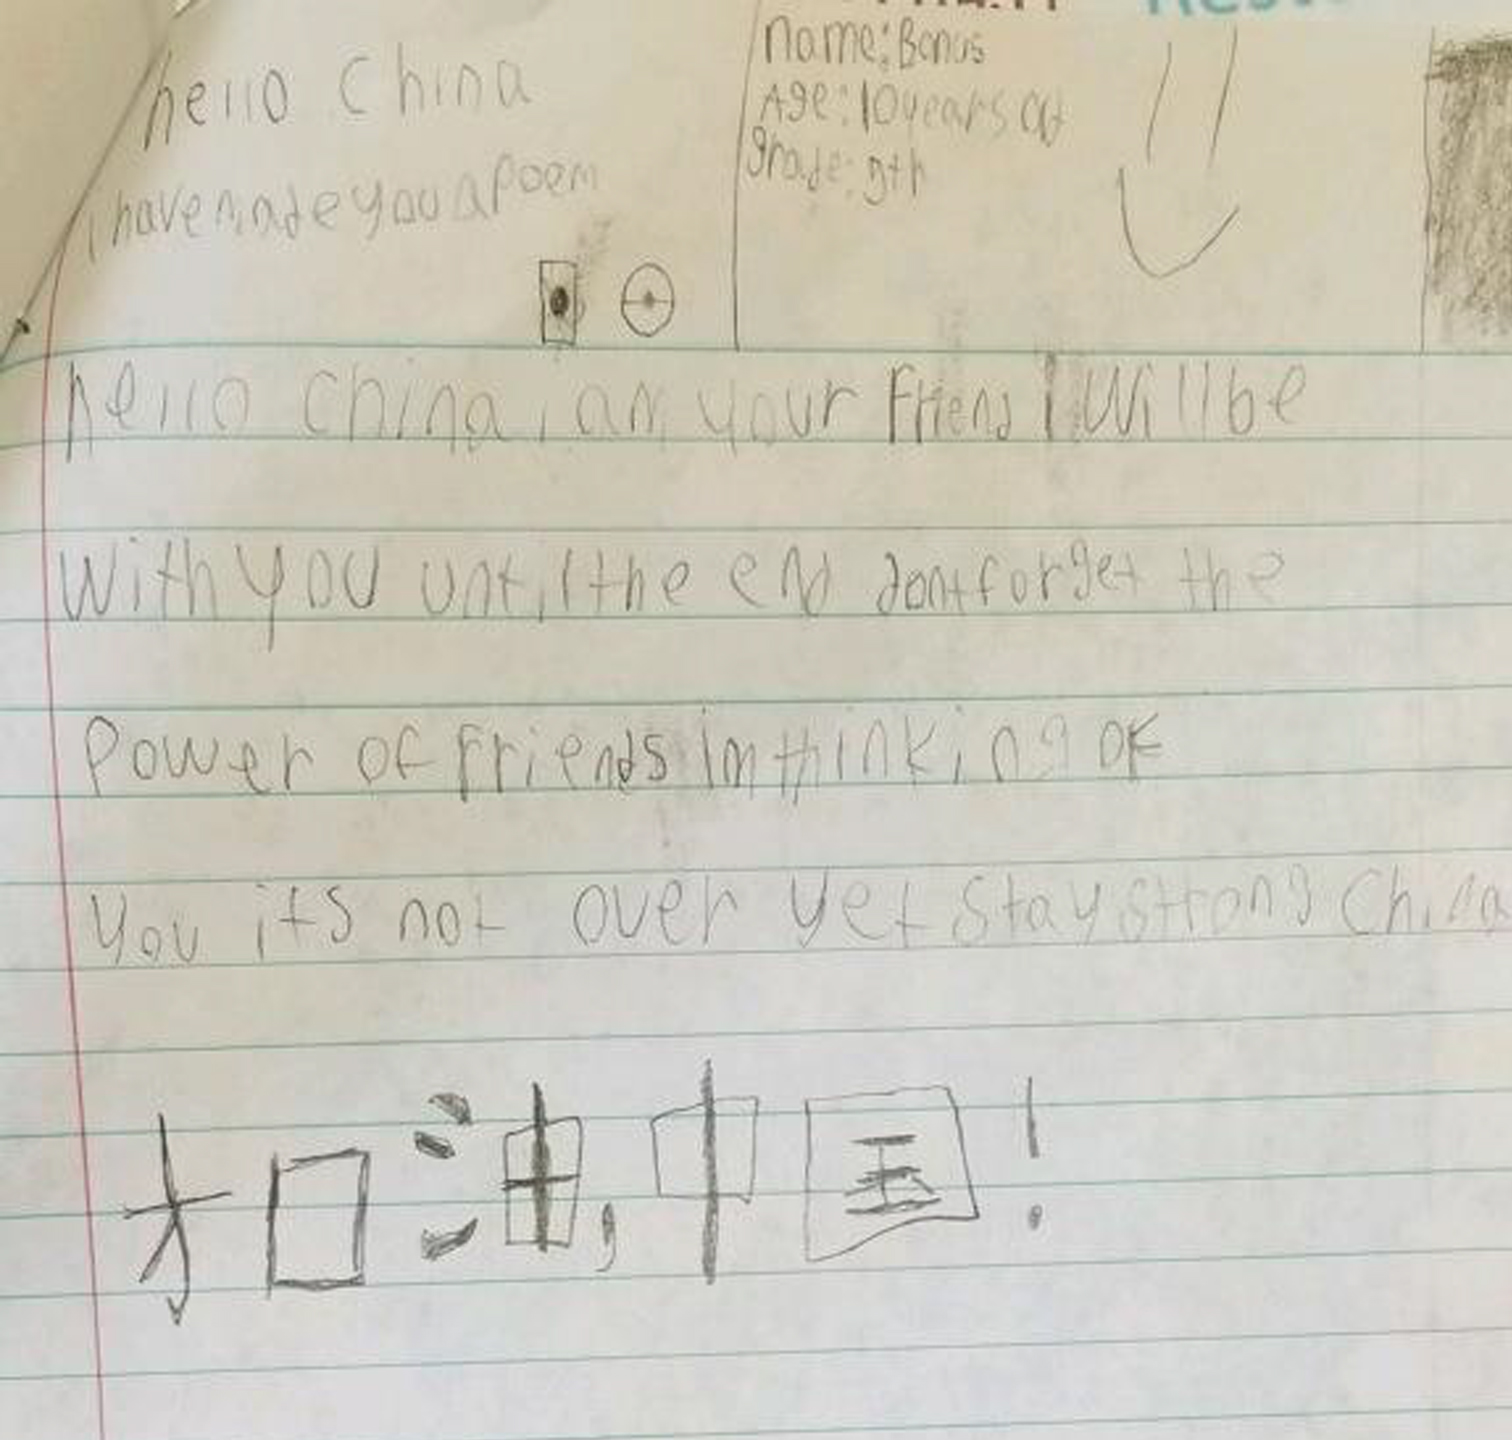 hello China
i have made you a poem
name: Bonus
Age: 10 years old
grade: 5th
hello china i am your Friend I Will be
With you until the end dont forget the
Power of friends im thinking of
you its not over yet stay strong China
加油,中国!